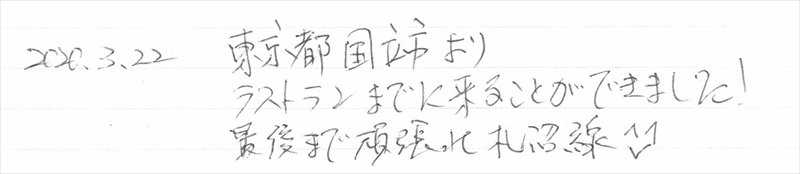 2020.3.22 東京都国立市より
ラストランまでに来ることができました!
最後まで頑張れ札沼線!!